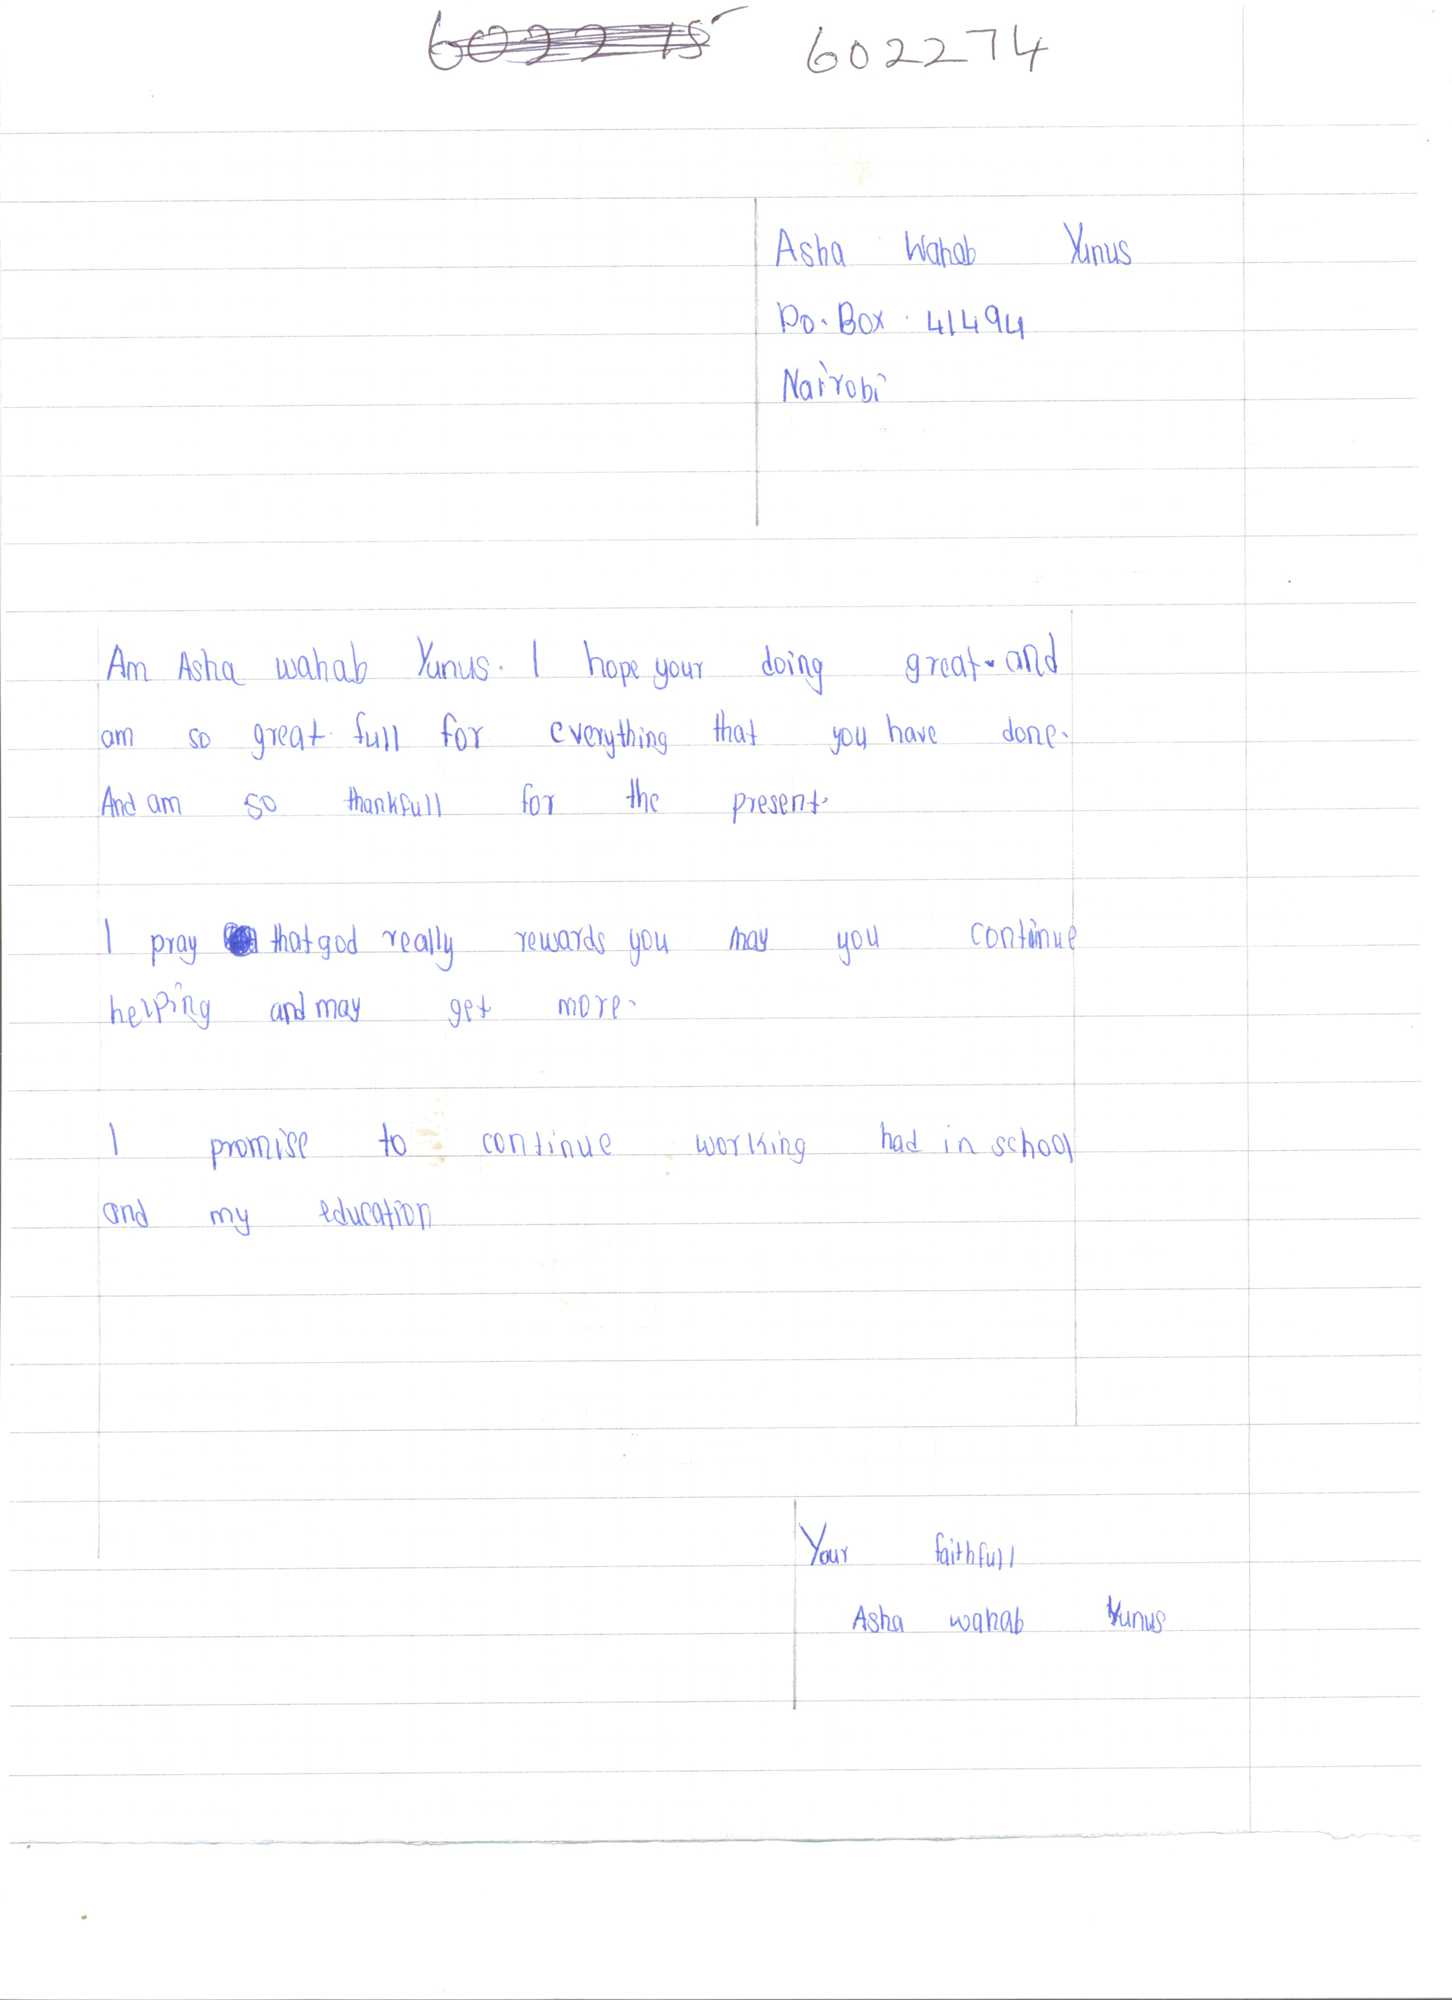 602274
Asha Wahab Yunus
Po. Box. 41494
Nairobi
Am Asha wahab Yunus. I hope your doing great. and
am so great full for everything that you have done.
And am so thankfull for the present.
I pray that god really rewards you may you continue
helping and may get more.
I promise to continue working had in school
and my education
Your faithfull
Asha wahab Yunus